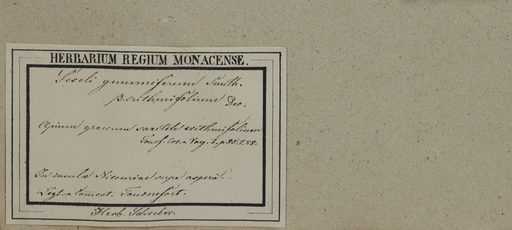 HERBARIUM REGIUM MONACENSE.
Seseli gummiferum Smith.
β. crithmifolium Dec.
Apium graecum saxatile crithmifolium
Tournf. Cor. & Voy. 1. p.
In insulae Nicouriae rupe aspera.
Legit comont. Tournefort.
Herb. Schreber.